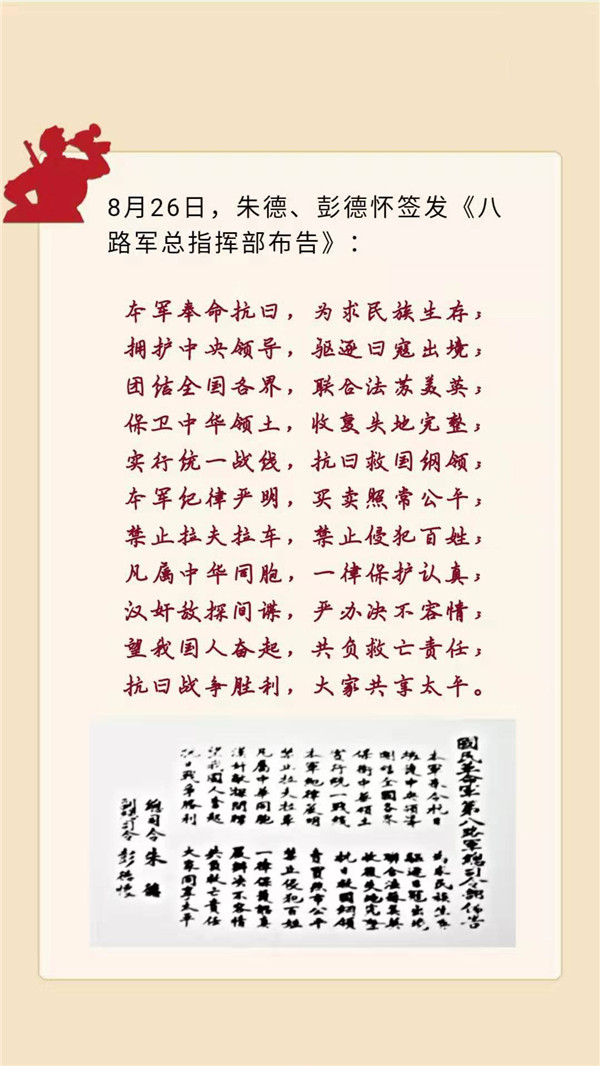 8月26日，朱德、彭德怀签发《八
路军总指挥部布告》：
本军奉命抗日，为求民族生存；
拥护中央领导，驱逐日寇出境；
团结全国各界，联合法苏美英；
保卫中华领土，收复失地完整；
实行统一战线，抗日救国纲领；
本军纪律严明，买卖照常公平；
禁止拉夫拉车，禁止侵犯百姓；
凡属中华同胞，一律保护认真；
汉奸敌探间谍，严办决不容情；
望我国人奋起，共负救亡责任；
抗日战争胜利，大家共享太平。
國民革命軍第八路軍總司令部佈告
本軍奉命抗日 為求民族生存
擁護中央領導 驅逐日寇出境
團結全國各界 聯合法蘇美英
保衛中華領土 收復失地完整
實行統一戰線 抗日救國綱領
本軍紀律嚴明 買賣照常公平
禁止拉夫拉車 禁止侵犯百姓
凡屬中華同胞 一律保護認真
漢奸敵探間諜 嚴辦決不容情
望我國人奮起 共負救亡責任
抗日戰爭勝利 大家同享太平
總司令 朱德
副總司令 彭德懷